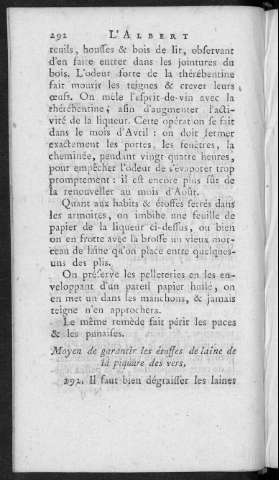 292 L'ALBERT
teuils, housses & bois de lit, observant
d'en faire entrer dans les jointures du
bois. L'odeur forte de la thérébentine
fait mourir les teignes & crever leurs
œufs. On mêle l'esprit-de-vin avec la
thérébentine, afin d'augmenter l'acti-
vité de la liqueur. Cette opération se fait
dans le mois d'Avril : on doit fermer
exactement les portes, les fenêtres, la
cheminée, pendant vingt-quatre heures,
pour empêcher l'odeur de s'évaporer trop
promptement : il est encore plus sûr de
la renouveller au mois d'Août.
Quant aux habits & étoffes serrés dans
les armoires, on imbibe une feuille de
papier de la liqueur ci-dessus, ou bien
on en frotte avec la brosse un vieux mor-
ceau de laine qu'on place entre quelques-
uns des plis.
On préserve les pelleteries en les en-
veloppant d'un pareil papier huilé, on
en met un dans les manchons, & jamais
teigne n'en approchera.
Le même remède fait périr les puces
& les punaises.
Moyen de garantir les étoffes de laine de
la piquure des vers.
292. Il faut bien dégraisser les laines